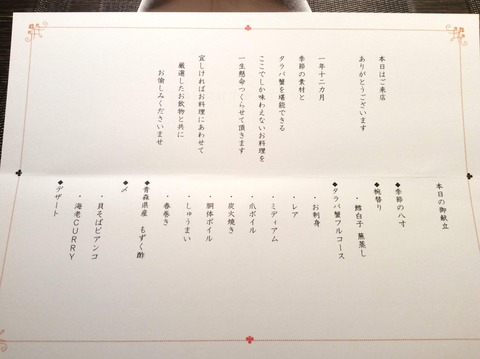 本日はご来店
ありがとうございます
一年十二カ月
季節の素材と
タラバ蟹を堪能できる
ここでしか味わえないお料理を
一生懸命つくらせて頂きます
宜しければお料理にあわせて
厳選したお飲物と共に
お愉しみくださいませ
本日の御献立
◆季節の八寸
◆椀替り
・鱈白子 蕪蒸し
◆タラバ蟹フルコース
・お刺身
・レア
・ミディアム
・爪ボイル
・炭火焼き
・胴体ボイル
・しゅうまい
・春巻き
◆青森県産 もずく酢
◆〆
・貝そばビアンコ
・海老CURRY
◆デザート